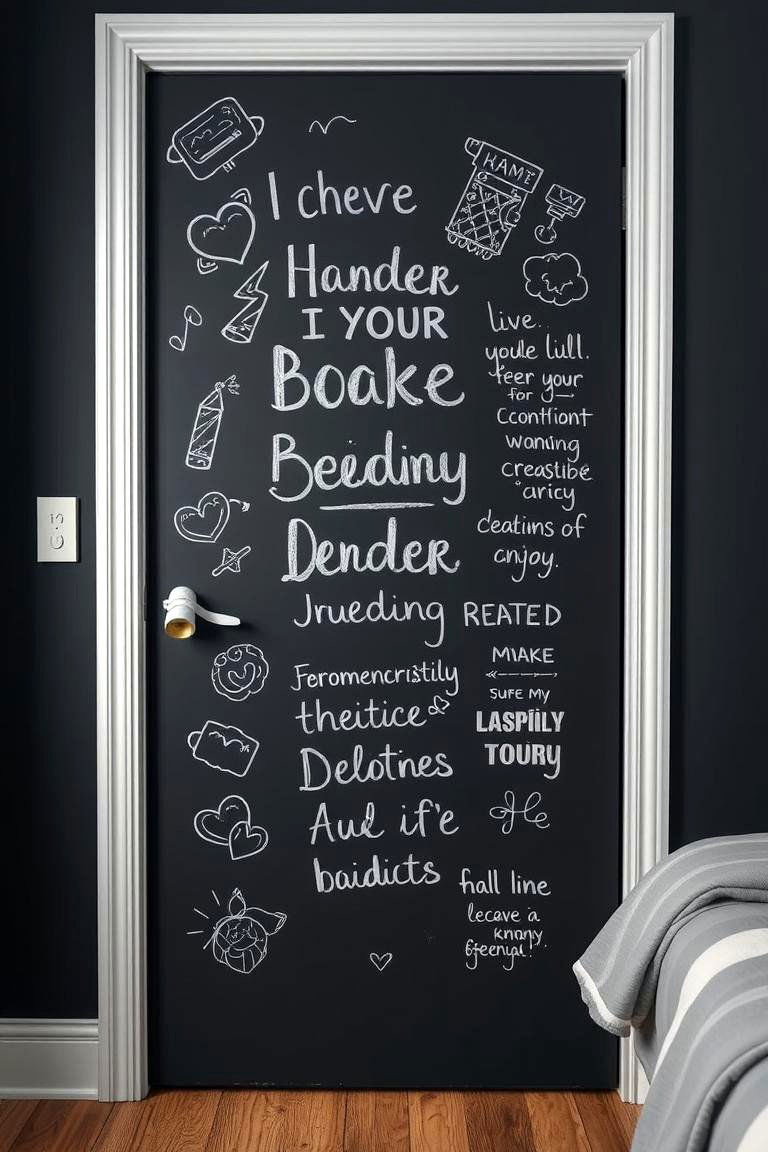 I cheve
Hander
I YOUR
Boake
Beediny
Dender
Jrueding
Feromencristily
theitice
Delotnes
Aud if'e
baidicts
HAME
live.
youle lull.
feer your
for
Ccontfiont
waning
creastibe
aricy
deatims of
cnjoy.
REATED
MIAKE
SUFE MY
LASPIILY
TOURY
hall line
lecave a
knany